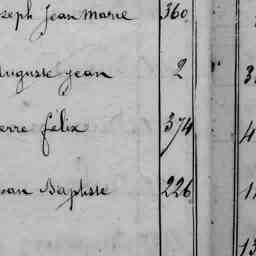 seph Jean Marie 360
Auguste Jean 2
erre félix 374
ean Baptiste 226